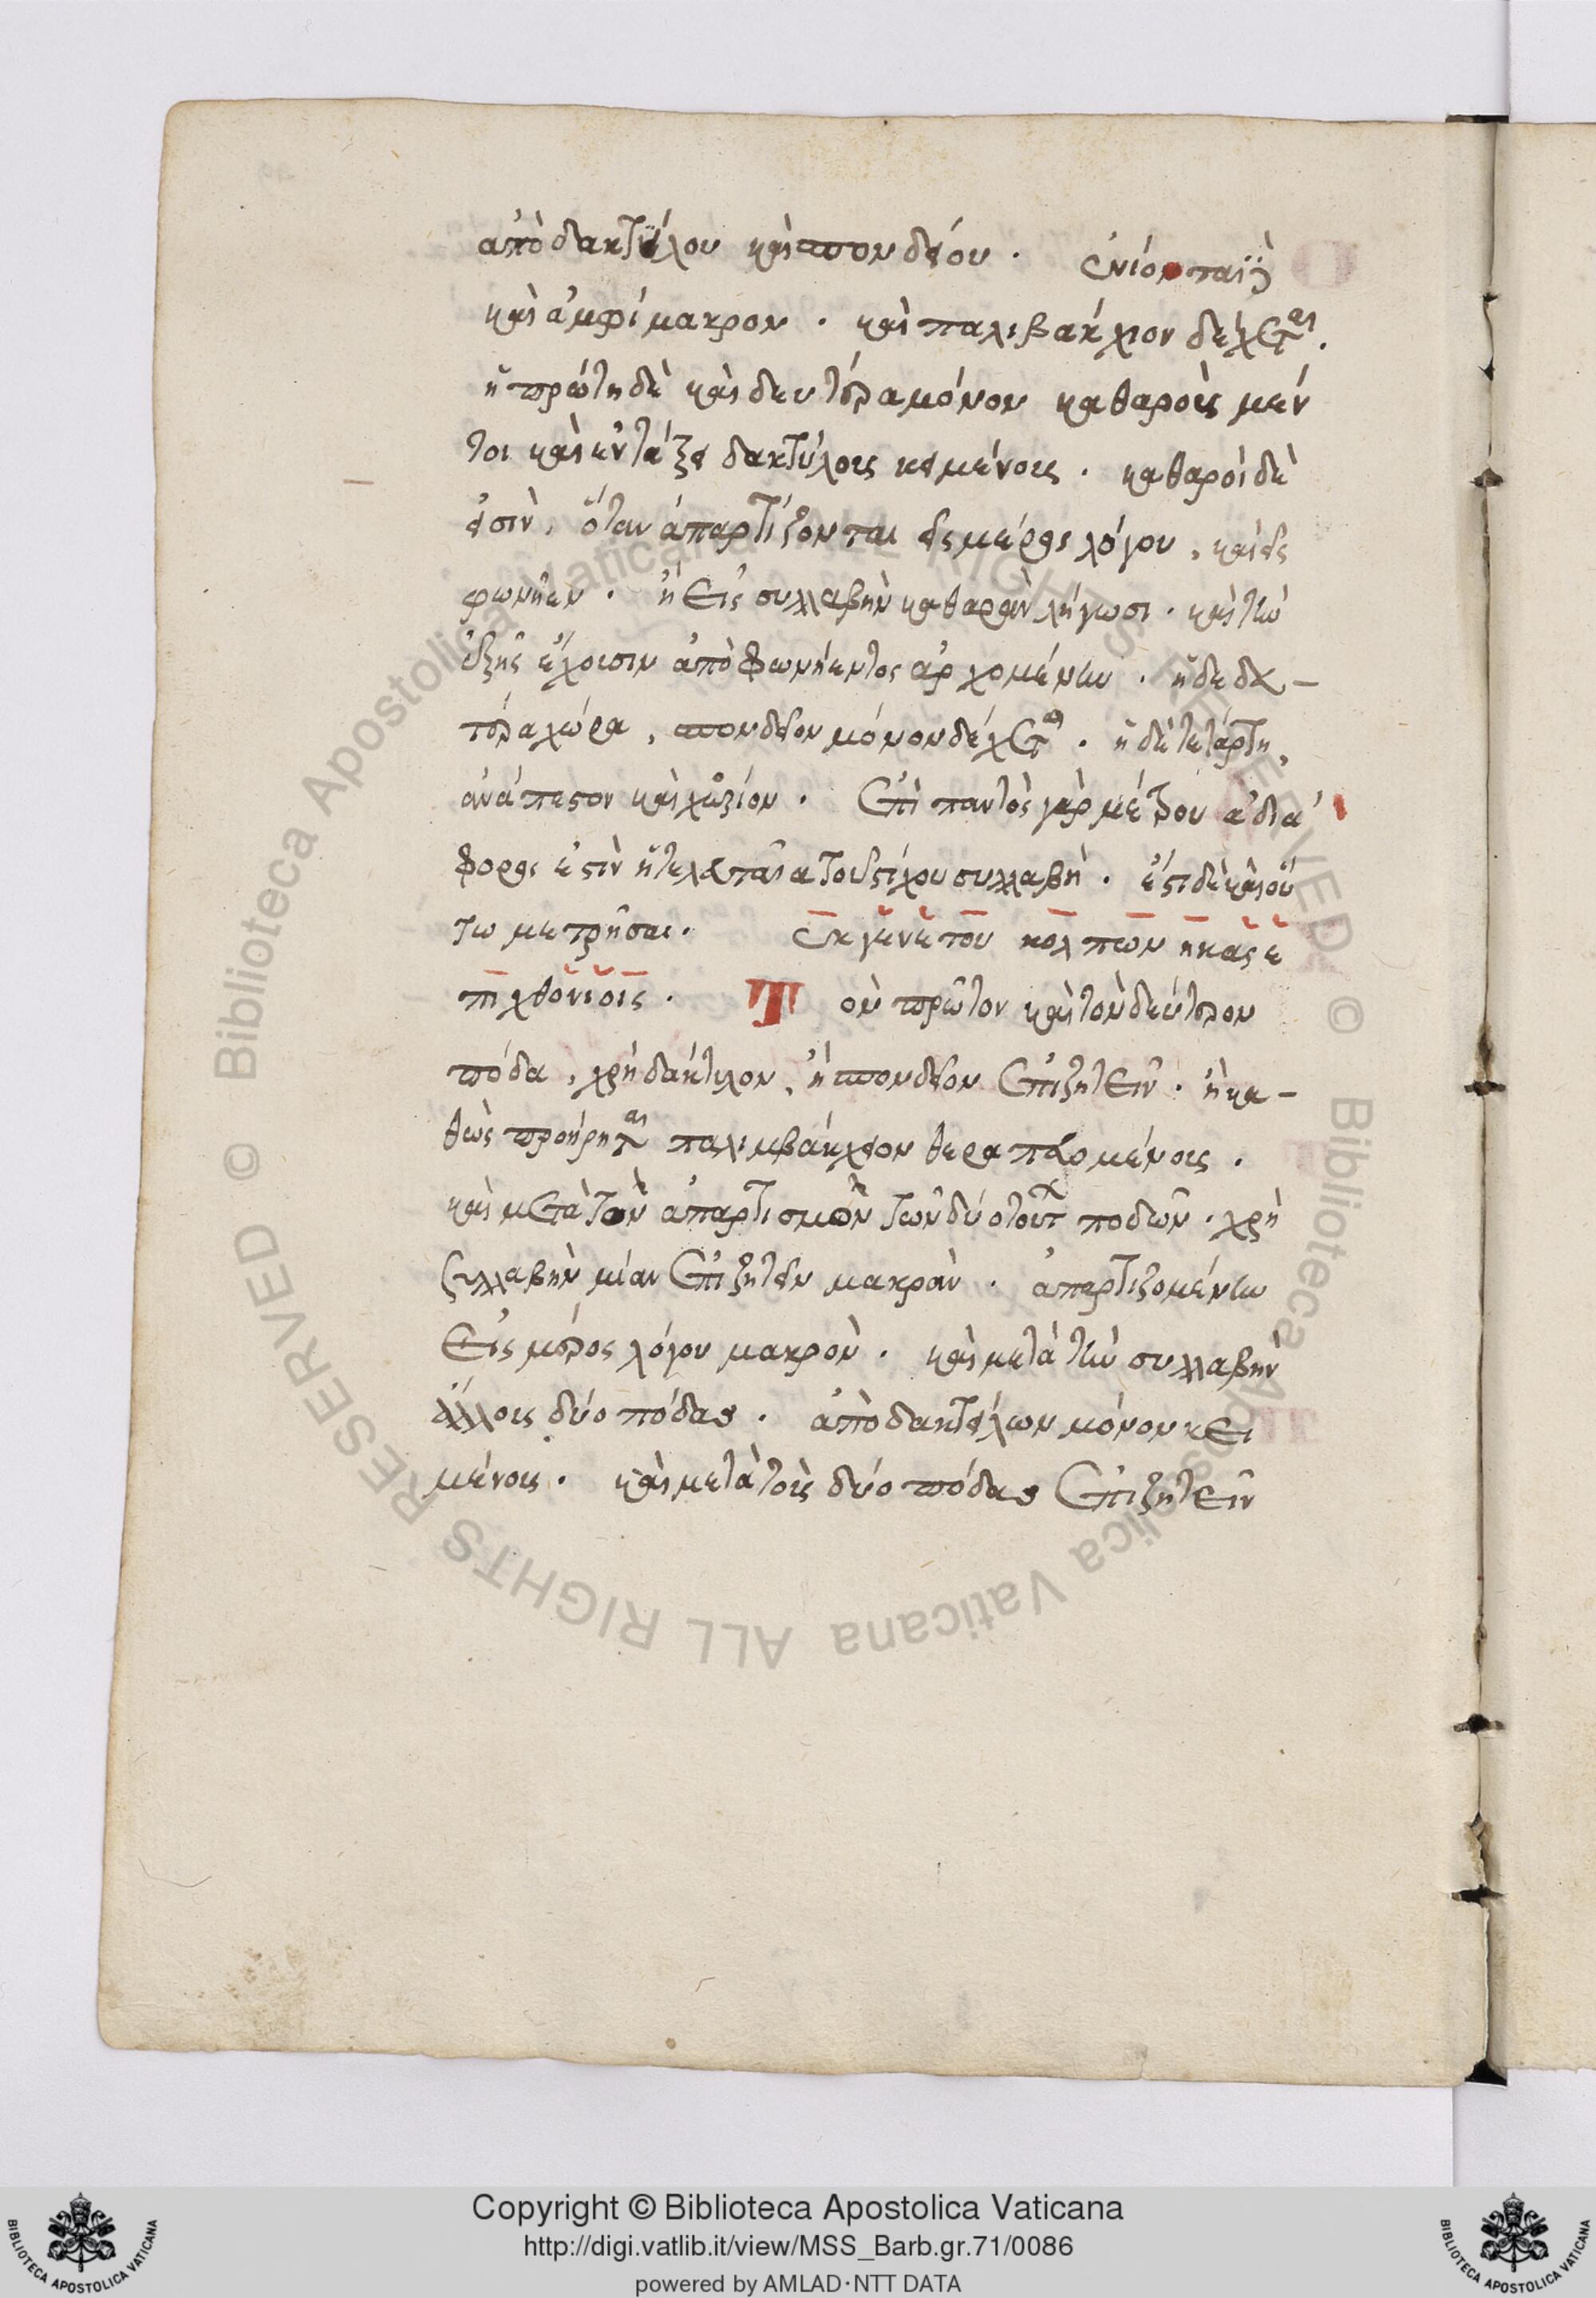 ἀπὸ δακτύλου καὶ σπονδείου. ἐνίοτε
καὶ ἀμφίμακρον. καὶ παλιβάκχιον δέχεται.
ἡ πρώτη δὲ καὶ δευτέρα μόνον καθαροῖς μέν
τοι καὶ ἐν τάξει δακτύλοις κειμένοις. καθαροὶ δὲ
εἰσὶν, ὅταν ἀπαρτίζονται εἰς μέρος λόγου, καὶ εἰς
φωνῆεν. ἢ εἰς συλλαβὴν καθαρὰν λήγωσι. καὶ τὴν
ἑξῆς ἔχοισιν ἀπὸ φωνήεντος ἀρχομένην. ἡ δὲ δευ-
τέρα χώρα, σπονδεῖον μόνον δέχεται. ἡ δὲ τετάρτη,
ἀνάπεστον καὶ χωρίον. ἐπὶ παντὸς γὰρ μέτρου ἀδιά
φορός ἐστιν ἡ τελευταία τοῦ στίχου συλλαβή. ἔστι δὲ καὶ οὕ
τω μετρῆσαι. ἐκ γενέτου κόλπων ἧκας ἐ
πιχθονίοις. Τὸν πρῶτον καὶ τὸν δεύτερον
πόδα, χρὴ δάκτιλον, ἢ σπονδεῖον ἐπιζητεῖν. ἢ κα-
θὼς προήρηται παλιμβάκχειον θεραπευομένοις.
καὶ μετὰ τὸν ἀπαρτισμὸν τῶν δύο τούτων ποδῶν. χρὴ
συλλαβὴν μίαν ἐπιζητεῖν μακρὰν. ἀπαρτιζομένην
εἰς μέρος λόγου μακρὸν. καὶ μετὰ τὴν συλλαβὴν
ἄλλοις δύο πόδας. ἀπὸ δακτύλων μόνον κει
μένοις. καὶ μετὰ τοὶς δύο πόδας ἐπιζητεῖν
© Biblioteca Apostolica Vaticana ALL RIGHTS RESERVED
Copyright © Biblioteca Apostolica Vaticana
http://digi.vatlib.it/view/MSS_Barb.gr.71/0086
powered by AMLAD·NTT DATA
BIBLIOTECA APOSTOLICA VATICANA
BIBLIOTECA APOSTOLICA VATICANA